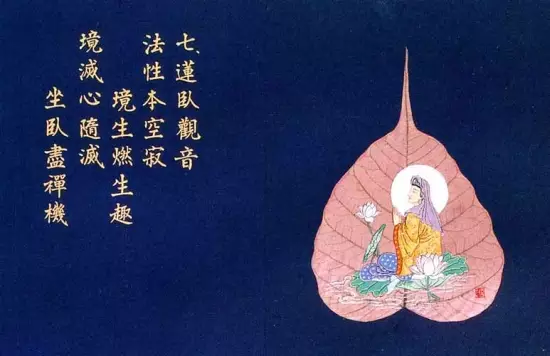 七、蓮臥觀音
法性本空寂
境生燃生趣
境滅心隨滅
坐臥盡禪機